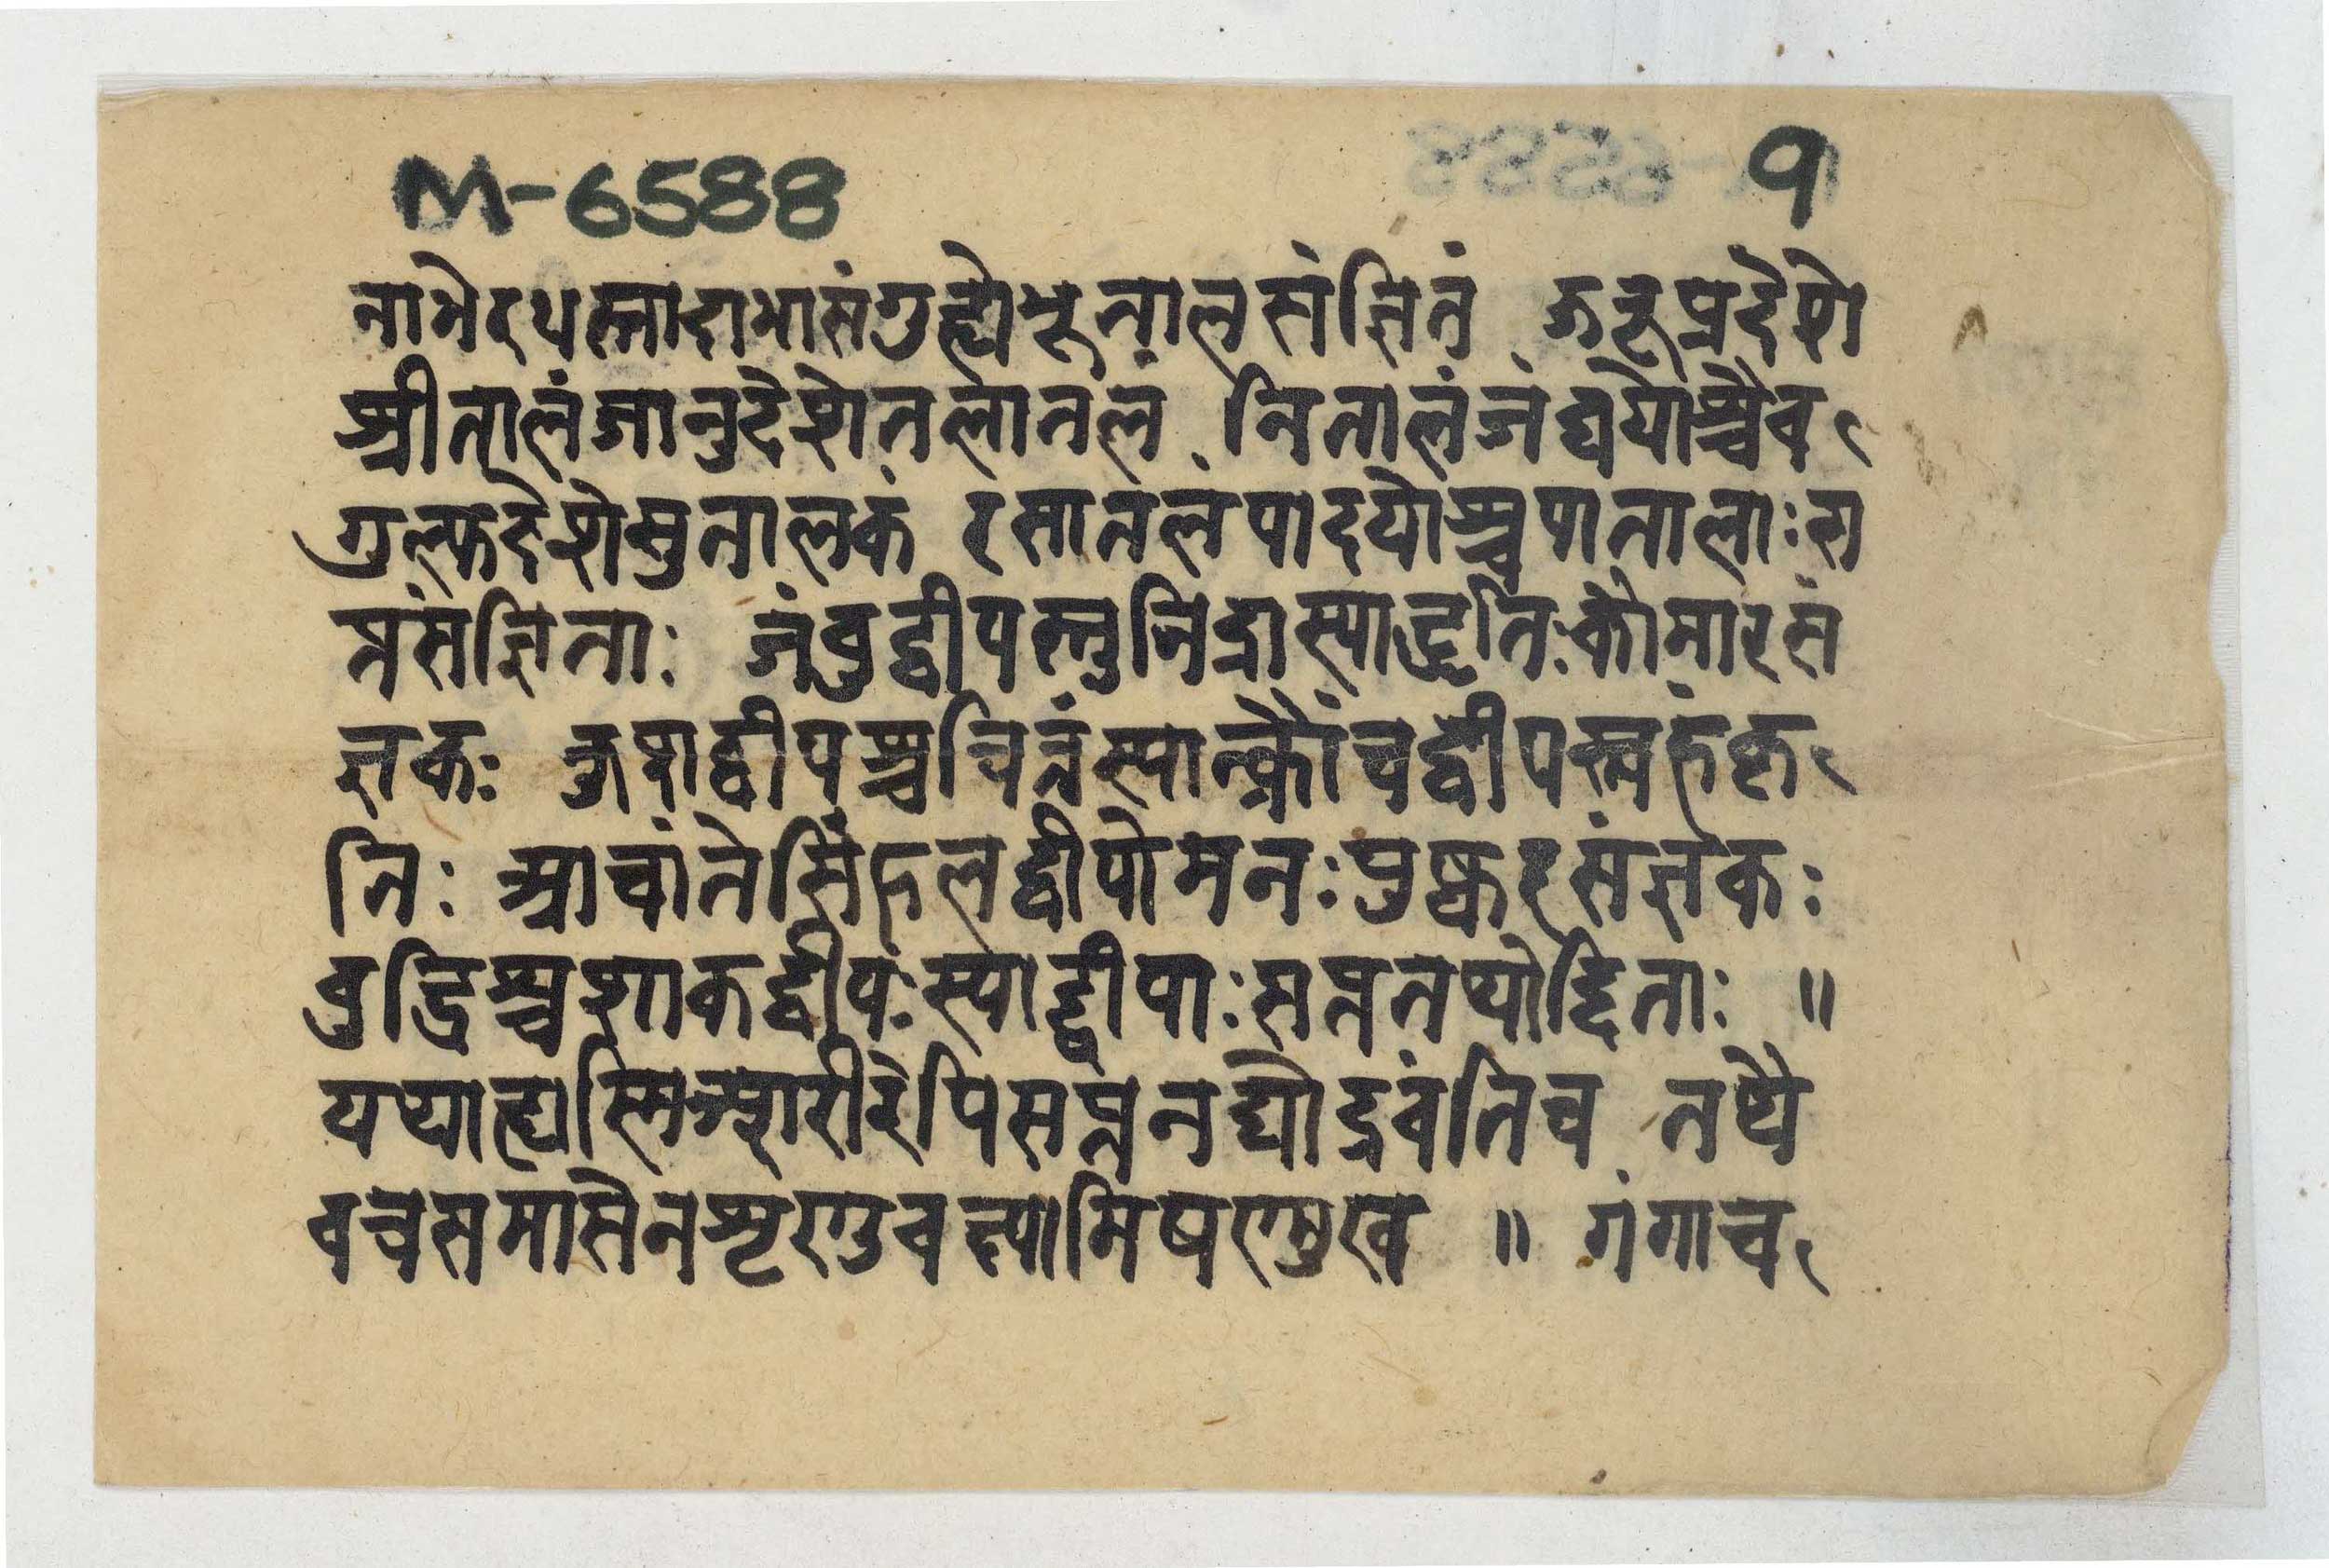 M-6588 १
नाभेरधस्तादाभासंगुह्येभूतालसंज्ञितं ऊरूप्रदेशे
श्रीतालंजानुदेशेतलातलं नितालंजंघयोश्चैव
गुल्फदेशेसुतालकं रसातलंपादयोश्चपातालाःस
प्तसंज्ञिताः जंबुद्वीपस्तुनिद्रास्याद्धृतिःकौमारसं
ज्ञकः कुशद्वीपश्चचित्तंस्यात्क्रौंचद्वीपस्त्वहंकृ
तिः श्रावांतेसिंहलद्वीपोमनःपुष्करसंज्ञकः
बुद्धिश्चशाकद्वीपःस्याद्द्वीपाःसप्ततथोदिताः ॥
यथाह्यस्मिञ्शरीरेपिसप्तनद्योद्रवंतिच तथै
वचसमासेनशृणुवक्ष्यामिषण्मुख ॥ गंगाच